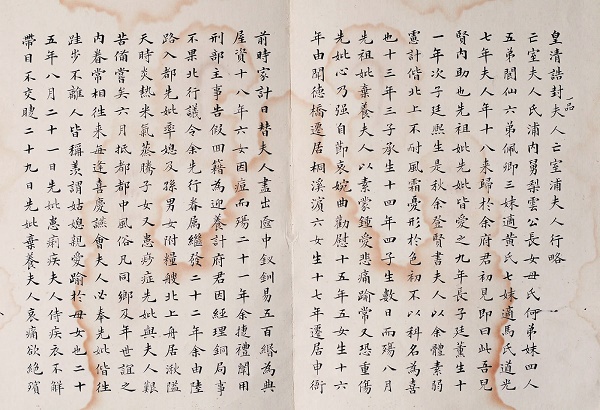 皇清誥封夫人亡室浦夫人行略
品
亡室夫人氏浦內舅梨雲公長女母氏何弟妹四人
五弟閬仙六弟佩卿三妹適黃氏七妹適馬氏道光
七年夫人年十八來歸於余府君初見即曰此吾兒
賢內助也先祖妣先妣皆愛之九年長子廷薰生十
一年次子廷熙生是秋余登賢書夫人以余體素弱
憲計偕北上不耐風霜憂形於色初不以科名為喜
也十三年三子承生十四年四子生數日而殤八月
先祖妣棄養夫人以素蒙鍾愛悲痛踰常又恐重傷
先妣心乃強自節哀婉曲勸慰十五年五女生十六
年由闊德橋遷居桐溪濱六女生十七年遷居申衙
前時家計日替夫人盡出奩中釵釧易五百緡為典
屋資十八年六女因痘而殤二十一年余捷禮闈用
刑部主事告假回籍為迎養計府君因經理銅局事
不果北行議令余先行眷屬繼發二十二年余由陸
路入都先妣率媳及孫男女附糧艘北上舟居湫隘
天時炎熱米氣蒸騰子女又患痧症先妣與夫人艱
苦備嘗矣六月抵都都中風俗凡同鄉及年世誼之
內眷常相往來每逢喜慶讌會夫人必奉先妣偕往
跬步不離人皆稱羨謂姑媳親愛踰於母女也二十
五年八月二十一日先妣患痢疾夫人侍疾衣不解
帶目不交睫二十九日先妣棄養夫人哀痛欲絕殯